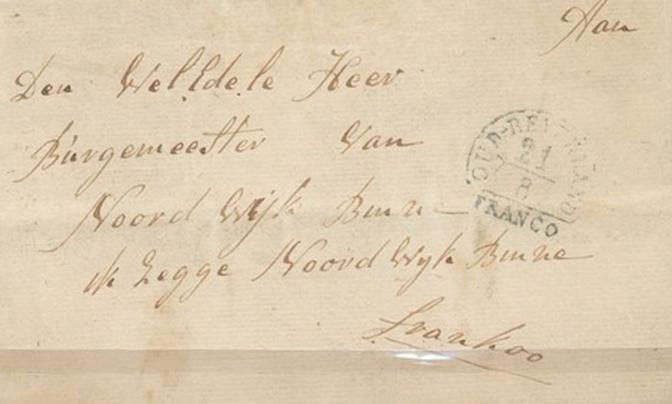 Aan
Den WelEdele Heer
Burgemeester Van
Noord Wijk Binne
ik Zegge Noord Wyk Binne
Frankoo
OUD-BEIJERLAND
21
8
FRANCO